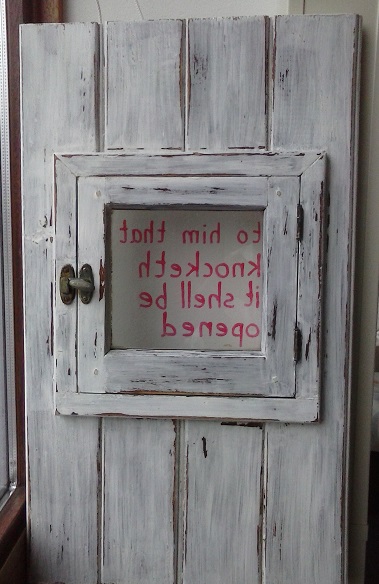 to him that
knocketh
it shell be
opened